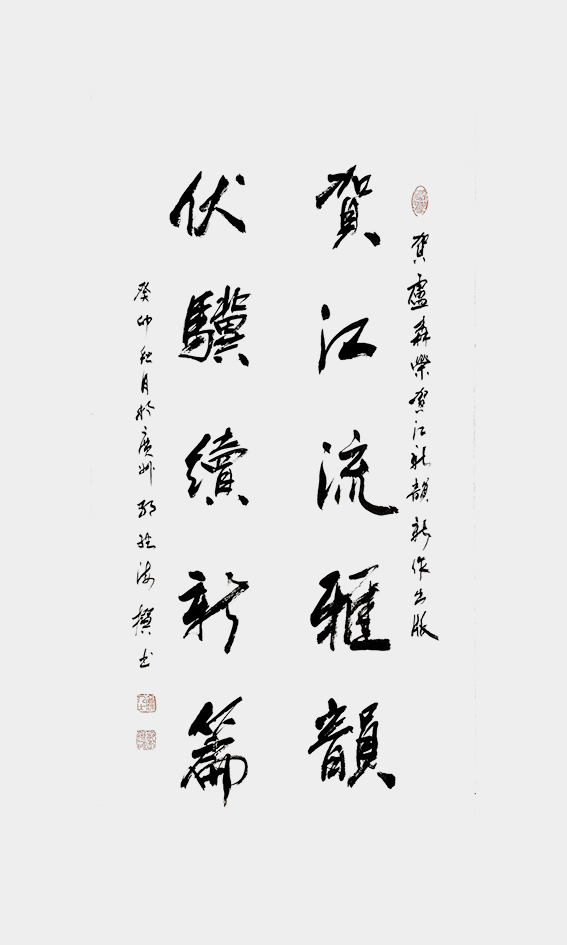 賀盧森榮賀江新韻新作出版
賀江流雅韻
伏驥續新篇
癸卯秋月於廣州 海撰书